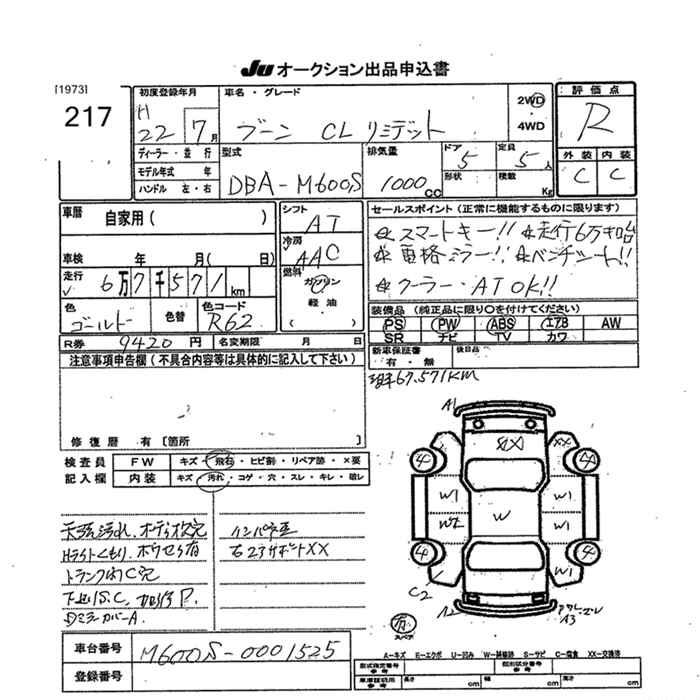 JU オークション出品申込書
[1973]
217
初度登録年月
H
22 7月
車名・グレード
ブーン CL リミテッド
2WD・4WD
評価点
R
外装 内装
C C
ディーラー・並行
モデル年式 年
ハンドル 左・右
型式
DBA-M600S
排気量
1000cc
ドア
5
形状
定員
5人
積数
Kg
車歴 自家用( )
車検 年 月( 日)
走行 6万7千571km
色 ゴールド
色替
色コード R62
シフト AT
冷房 AAC
燃料 ガソリン・軽油
( )
セールスポイント(正常に機能するものに限ります)
☆スマートキー!! ☆走行6万キロ台
☆電格ミラー!! ☆ベンチシート!!
☆クーラー・ATOK!!
装備品(純正品に限り○を付けてください)
PS PW ABS エアB AW
SR ナビ TV カワ
R券 9420円 名変期限 月 日
新車保証書 有・無
後日品
注意事項申告欄(不具合内容等は具体的に記入して下さい)
67,571KM
修復歴 有〔箇所 〕
検査員記入欄
FW キズ・飛石・ヒビ割・リペア跡・X要
内装 キズ・汚れ・コゲ・穴・スレ・キレ・破レ
A1
XX XX
4 4
W1 W1
W W1
4 4
W1
C2
A2 A3
スペア
トランク内C穴
下廻りS.C.
DミラーカバーA.
インパネ
右23サポートXX
車台番号 M600S-0001525
登録番号
A-キズ E-エクボ U-凹み W-補修跡 S-サビ C-腐食 XX-交換済
型式指定番号 参考
類別区分番号 参考
車庫証明用 参考
長さ cm 幅 cm 高さ cm